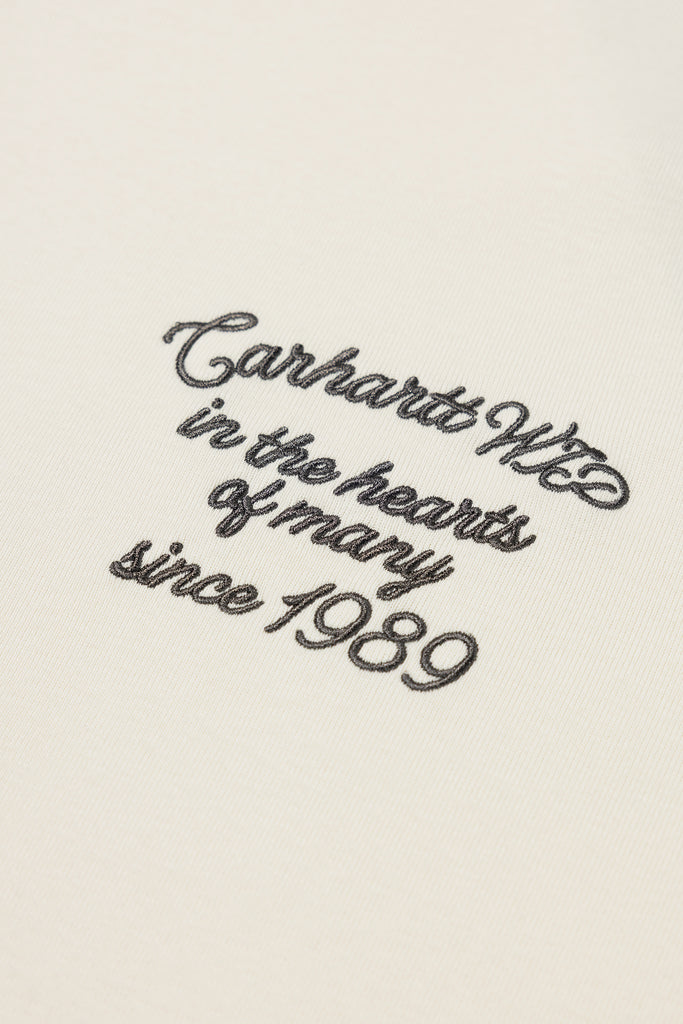 Carhartt WIP
in the hearts
of many
since 1989